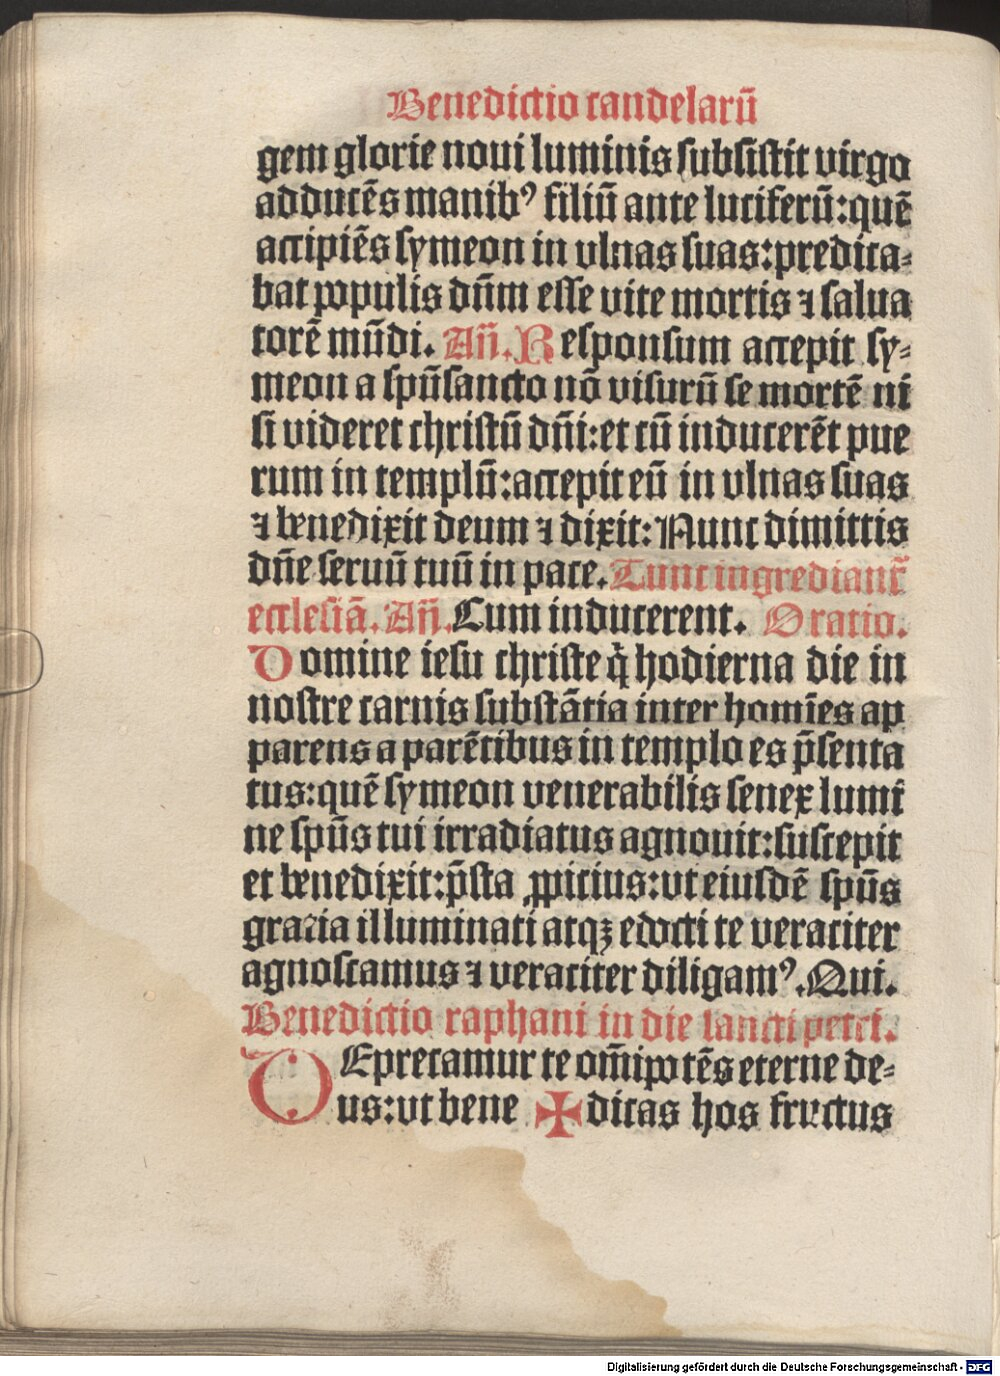 Benedictio candelarū
gem glorie noui luminis subsistit virgo
adducēs manibꝰ filiū ante luciferū: quē
accipiēs symeon in vlnas suas: predica-
bat populis dn̄m esse vite mortis ⁊ salua
torē mūdi. An̄. Responsum accepit sy-
meon a spūsancto nō visurū se mortē ni
si videret christū dn̄i: et cū inducerēt pue
rum in templū: accepit eū in vlnas suas
⁊ benedixit deum ⁊ dixit: Nunc dimittis
dn̄e seruū tuū in pace. Tunc ingrediant᷑
ecclesiā. An̄. Cum inducerent. Oratio.
Domine iesu christe q̇ hodierna die in
nostre carnis substātia inter homīes ap
parens a parētibus in templo es p̄senta
tus: quē symeon venerabilis senex lumi
ne spūs tui irradiatus agnouit: suscepit
et benedixit: p̄sta ꝓpicius: vt eiusdē spūs
gratia illuminati atqꝫ edocti te veraciter
agnoscamus ⁊ veraciter diligamꝰ. Qui.
Benedictio raphani in die sancti petri.
DEprecamur te om̄ipotēs eterne de-
us: vt bene ✠ dicas hos fructus
Digitalisierung gefördert durch die Deutsche Forschungsgemeinschaft - DFG